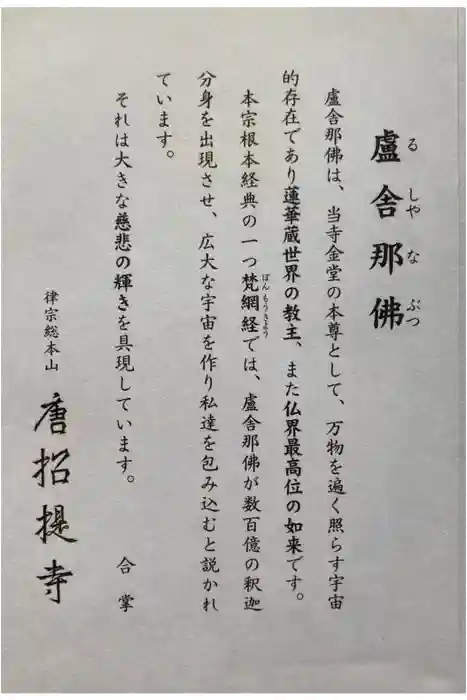 盧舎那佛
るしやなぶつ
盧舎那佛は、当寺金堂の本尊として、万物を遍く照らす宇宙
的存在であり蓮華蔵世界の教主、また仏界最高位の如来です。
本宗根本経典の一つ梵網経では、盧舎那佛が数百億の釈迦
ぼんもうきよう
分身を出現させ、広大な宇宙を作り私達を包み込むと説かれ
ています。
それは大きな慈悲の輝きを具現しています。
合掌
律宗総本山
唐招提寺